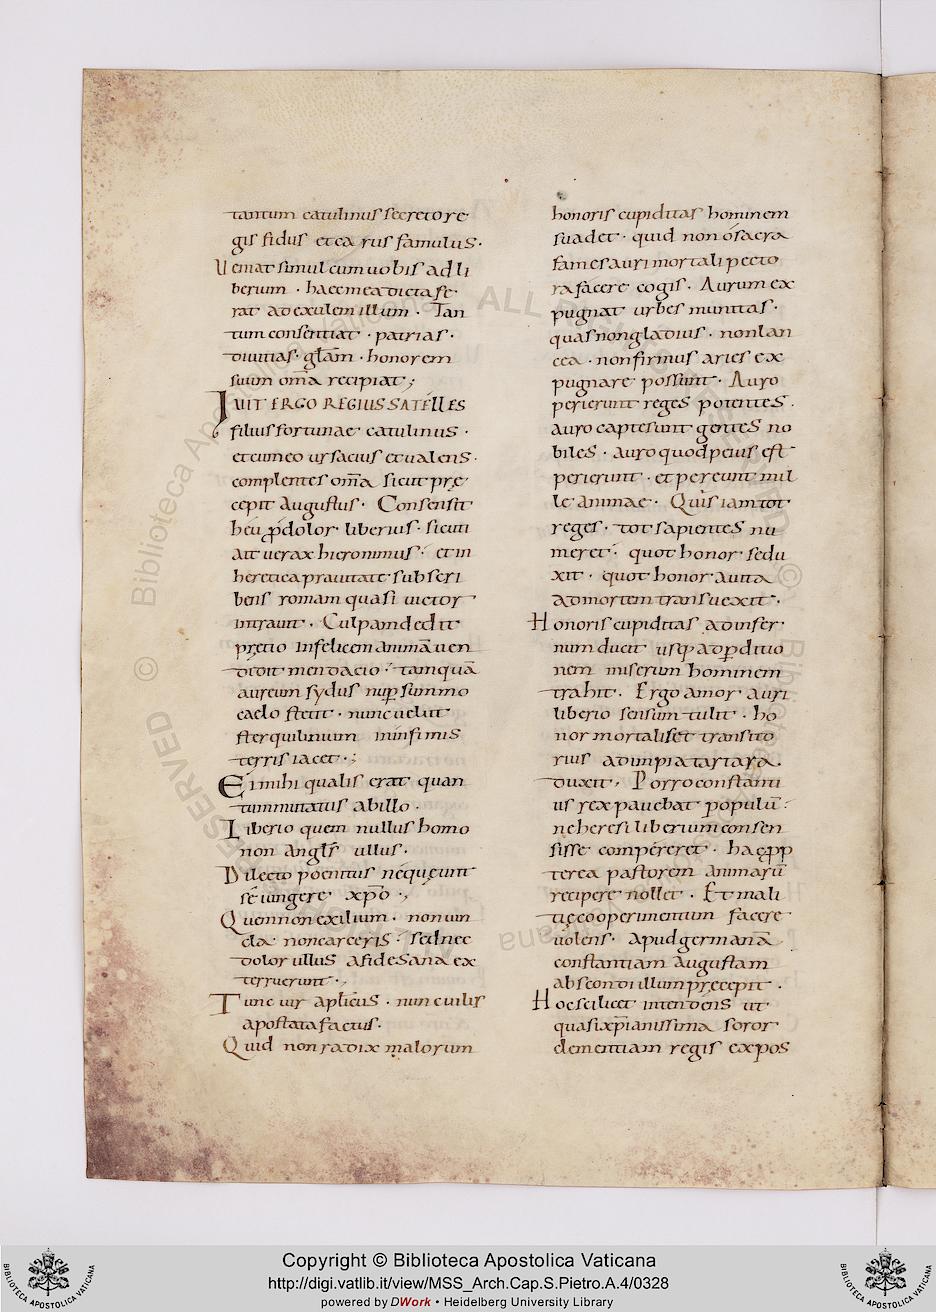 tantum catulinus secreto re
gis fidus et ca rus famulus.
Ueniat simul cum uobis ad li
berium . haec mea dicta fe
rat ad exulem illum . Tan
tum consentiat . patrias .
diuitias . glām . honorem
suum om̄a recipiat ;
IUIT ERGO REGIUS SATELLES
filius fortunae catulinus .
et cum eo ursacius et ualens .
complentes om̄a sicut prę
cepit augustus . Consensit
heu ꝓdolor liberius . sicuti
ait uerax hieronimus . et in
heretica prauitate subscri
bens romam quasi uictor
intrauit . Culpam dedit
pretio infelicem animā uen
didit mendacio . tamquā
aureum sydus nuꝑ summo
caelo stetit . nunc uelut
sterquilinium in infimis
terris iacet . ;
Ei mihi qualis erat quan
tum mutatus ab illo .
Liberio quem nullus homo
non angls̄ ullus .
Dilecto poenitus nequeunt
se iungere xp̄o . ;
Quem non exilium . non uin
cla non carceris . sed nec
dolor ullus a fide sana ex
terruerunt . ,
Tunc uir aplicus . nunc uilis
apostata factus .
Quid non radix malorum
honoris cupiditas hominem
suadet . quid non o sacra
fames auri mortali pecto
ra facere cogis . Aurum ex
pugnat urbes munitas .
quas non gladius . non lan
cea . non firmus aries ex
pugnare possunt . Auro
perierunt reges potentes .
auro capte sunt gentes no
biles . auro quod peius est
perierunt . et pereunt mil
le animae . Quis iam tot
reges . tot sapientes nu
meret . quot honor sedu
xit . quot honor auita
ad mortem transuexit .
Honoris cupiditas ad infer
num ducit usq; ad ꝑditio
nem miserum hominem
trahit . Ergo amor auri
liberio sensum tulit . ho
nor mortalis et transito
rius ad impia tartara .
duxit , Porro constanti
us rex pauebat populū .
ne heresi liberium consen
sisse compereret . hac ꝓp
terea pastorem animarū
recipere nollet . Et mali
tię cooperimentum facere
uolens . apud germanā
constantiam augustam
abscondi illum pręcepit .
Hoc scilicet intendens ut
quasi xp̄ianissima soror
clementiam regis expos
Copyright © Biblioteca Apostolica Vaticana
http://digi.vatlib.it/view/MSS_Arch.Cap.S.Pietro.A.4/0328
powered by DWork • Heidelberg University Library